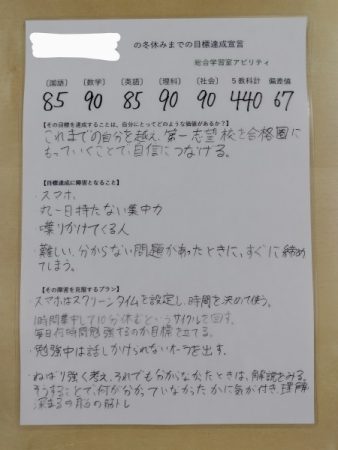 の冬休みまでの目標達成宣言
総合学習室アビリティ
(国語) (数学) (英語) (理科) (社会) 5教科計 偏差値
85 90 85 90 90 440 67
【その目標を達成することは、自分にとってどのような価値があるか?】
これまでの自分を越え、第一志望校を合格圏に
もっていくことで、自信につなげる。
【目標達成に障害となること】
・スマホ
・丸一日持たない集中力
・喋りかけてくる人
・難しい、分からない問題があったときに、すぐに諦め
てしまう。
【その障害を克服するプラン】
・スマホはスクリーンタイムを設定し、時間を決めて使う。
・1時間集中して10分休むというサイクルを回す。
毎日何時間勉強するのか目標を立てる。
・勉強中は話しかけられないオーラを出す。
・ねばり強く考え、それでも分からなかったときは、解説をみる。
そうすることで、何が分かっていなかったかに気が付き、理解
深まる